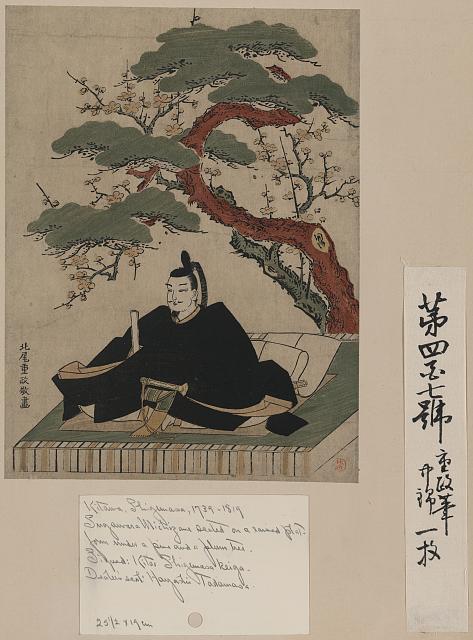 北尾重政敬畫
第四百七號 重政筆
中錦 一枚
Kitawo, Shigemasa, 1739-1819
Sugawara Michizane seated on a raised plat-
form under a pine and a plum tree.
Signed: Kitao Shigemasa keiga.
Dealer's seal: Hayashi Tadamasa.
25 1/2 x 19 cm